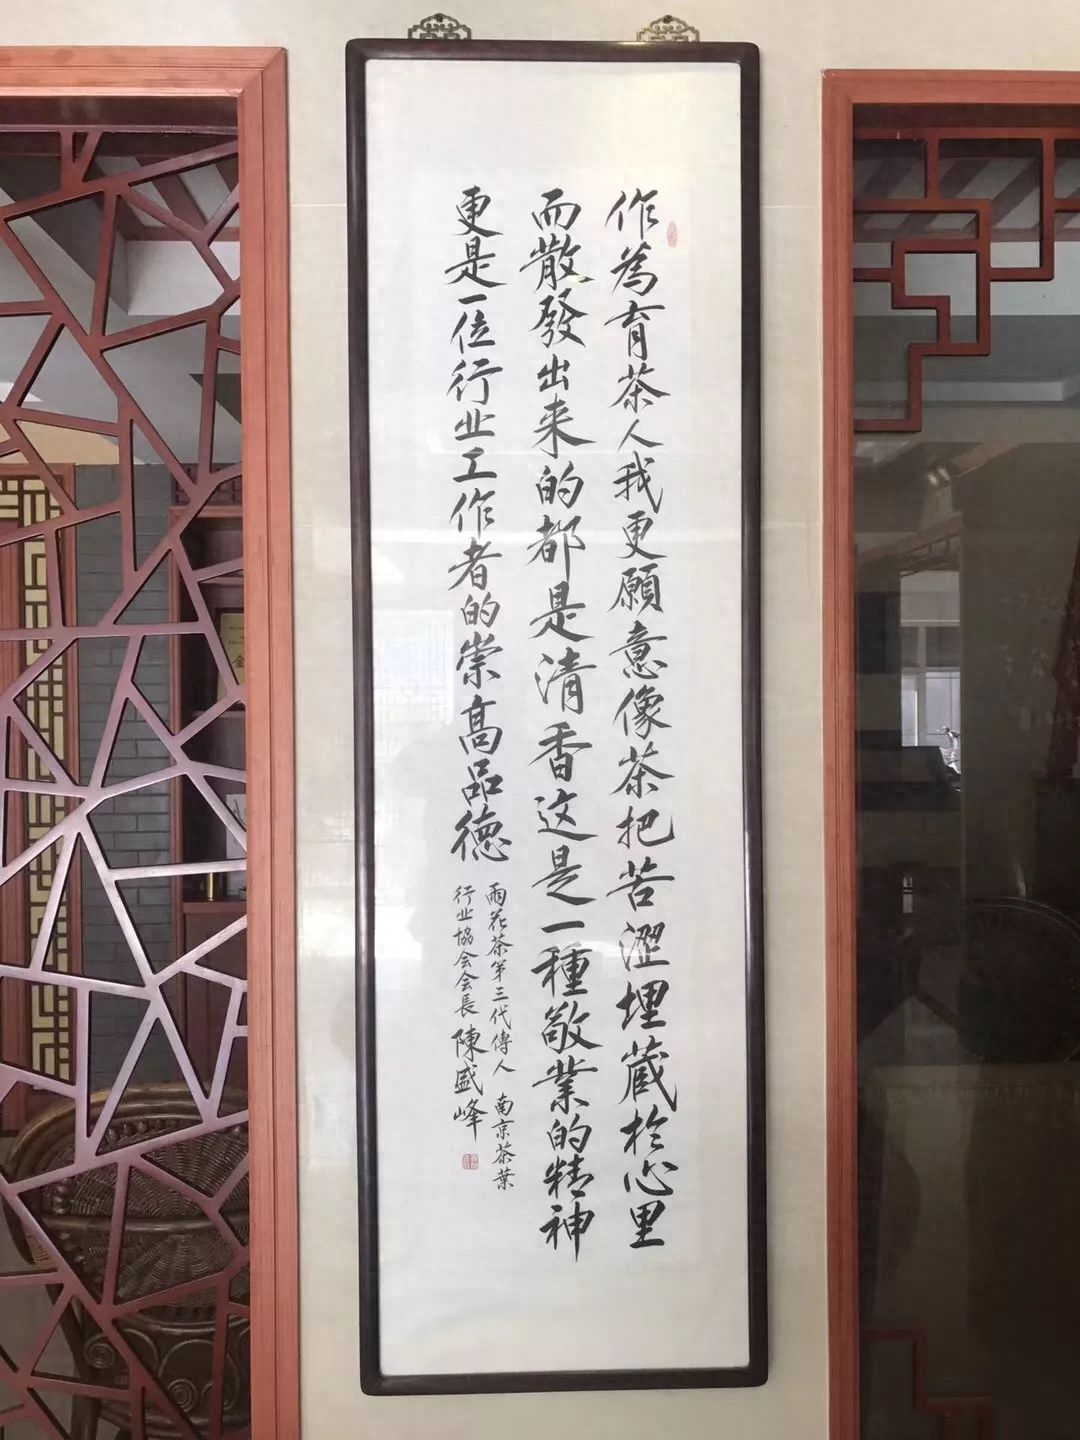 作為育茶人我更願意像茶把苦澀埋藏於心里
而散發出来的都是清香这是一種敬業的精神
更是一位行业工作者的崇高品德
雨花茶第三代傳人 南京茶葉
行业協会会長 陳盛峰